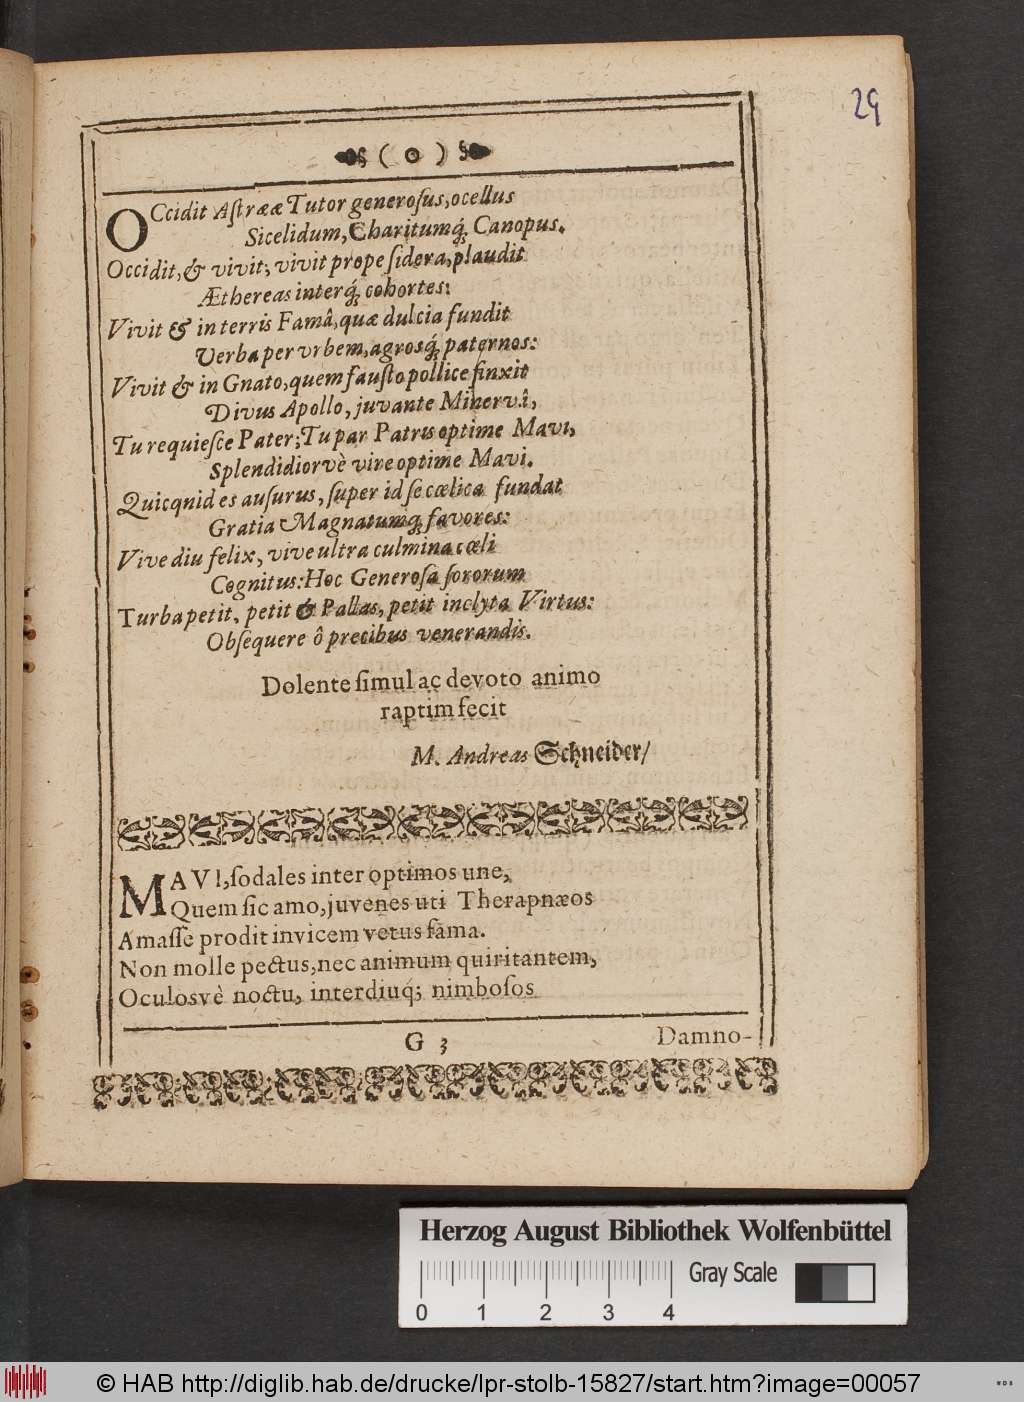 29
( o )
OCcidit Aſtrææ Tutor generoſus, ocellus
Sicelidum, Charitumq́; Canopus.
Occidit, & vivit; vivit prope ſidera, plaudit
Æthereas interq́; cohortes:
Vivit & in terris Famâ, quæ dulcia fundit
Verba per vrbem, agrosq́; paternos:
Vivit & in Gnato, quem fauſto pollice finxit
Divus Apollo, juvante Minervâ,
Tu requieſce Pater; Tu par Patris optime Mavi,
Splendidiorvè vire optime Mavi.
Quicqnid es auſurus, ſuper id ſe cælica fundat
Gratia Magnatumq́; favores:
Vive diu felix, vive ultra culmina cœli
Cognitus: Hoc Generoſa ſororum
Turba petit, petit & Pallas, petit inclyta Virtus:
Obſequere ô precibus venerandis.
Dolente ſimul ac devoto animo
raptim fecit
M. Andreas Schneider/
MAVI, ſodales inter optimos une,
Quem ſic amo, juvenes uti Therapnæos
Amaſſe prodit invicem vetus fama.
Non molle pectus, nec animum quiritantem,
Oculosvè noctu, interdiuq; nimboſos
G 3
Damno-
Herzog August Bibliothek Wolfenbüttel
Gray Scale
0 1 2 3 4
© HAB http://diglib.hab.de/drucke/lpr-stolb-15827/start.htm?image=00057